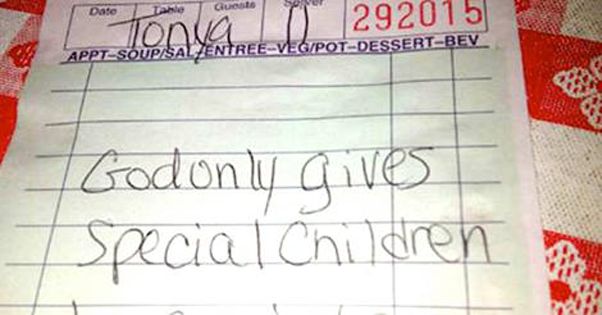 Date Table Guests Server
Tonya 292015
APPT-SOUP/SAL/ENTREE-VEG/POT-DESSERT-BEV
God only gives
Special Children